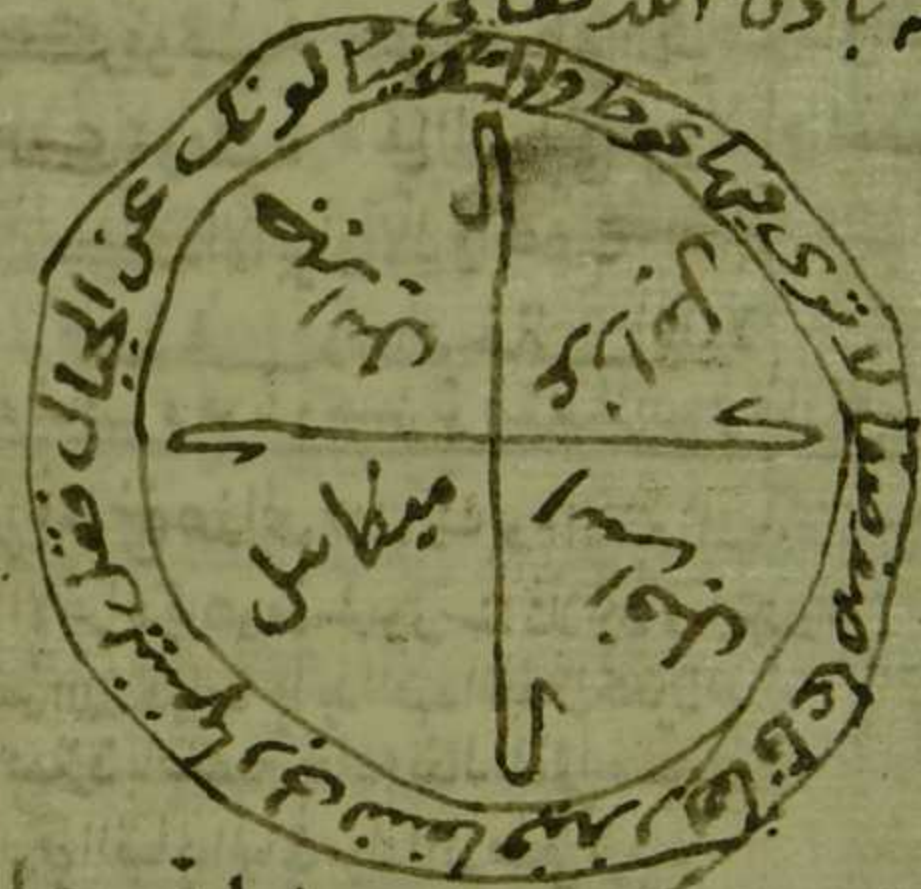 باذن الله تعالى
ويسالونك عن الجبال فقل ينسفها ربى نسفا فيذرها قاعا صفصفا لا ترى فيها عوجا ولا امتا
جبرائيل
عزرائيل
ميكائيل
اسرافيل